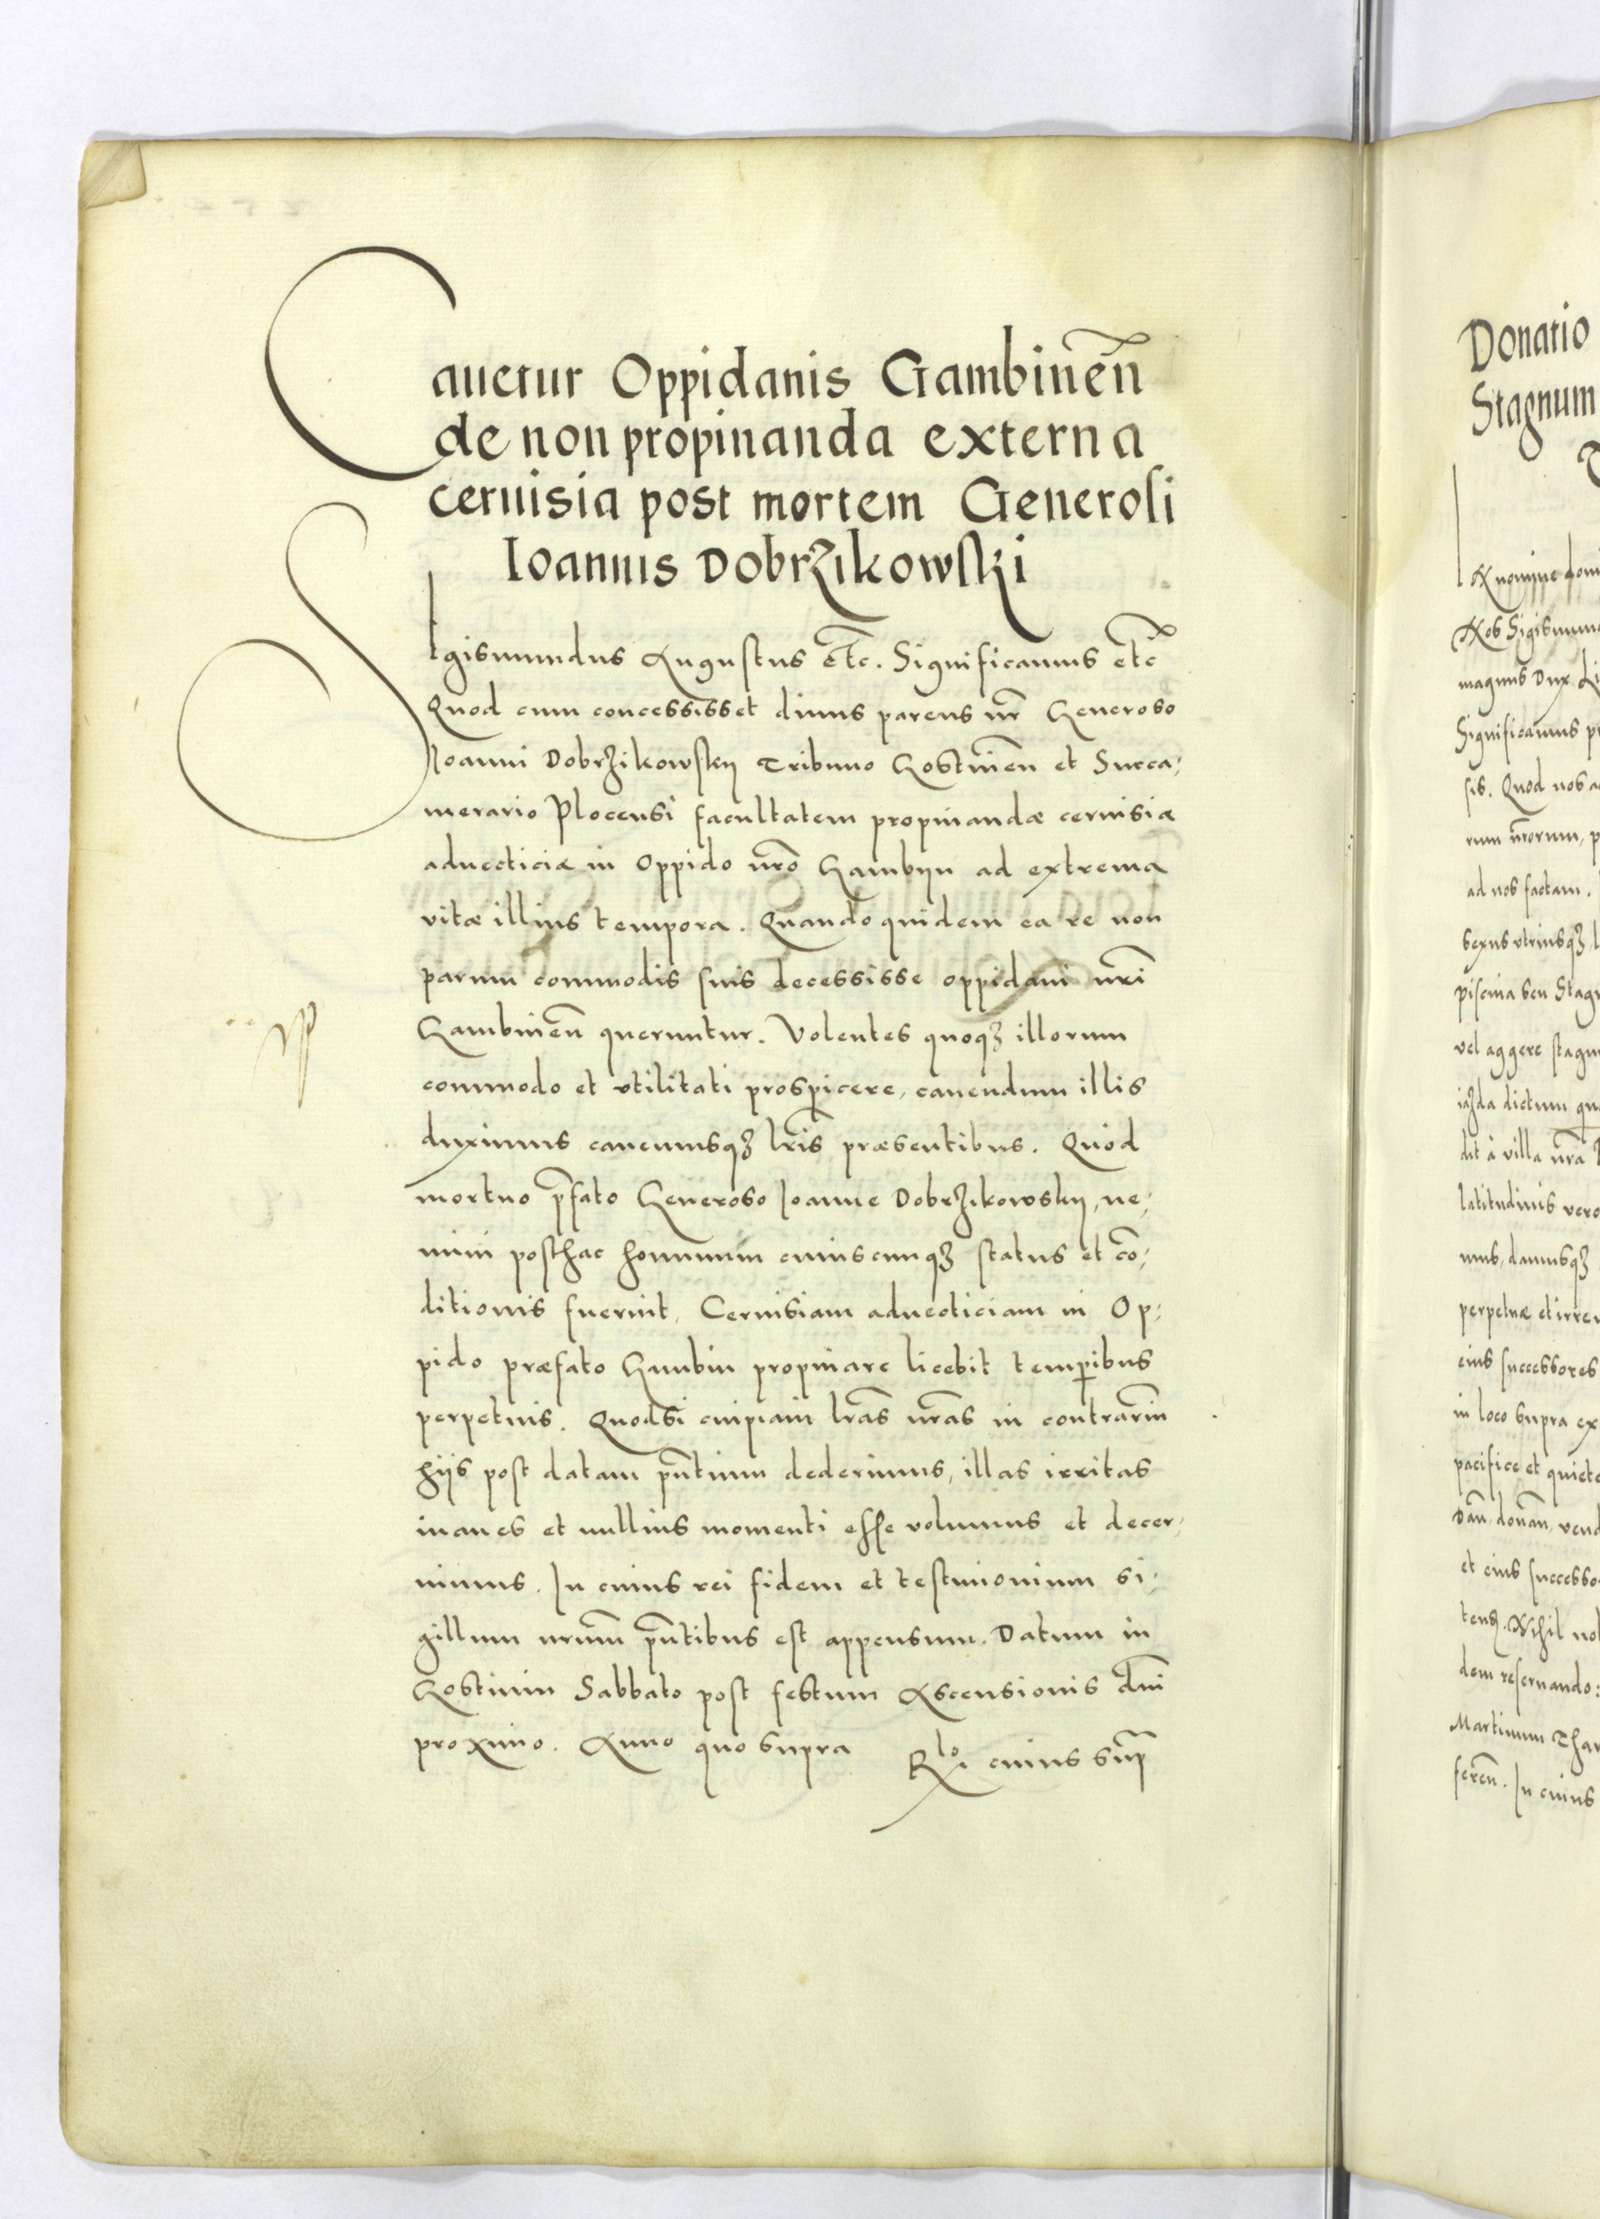 Cauetur Oppidanis Gambineñ
de non propinanda externa
ceruisia post mortem Generosi
Ioannis Dobrzikowski
Sigismundus Augustus etc. Significamus etc
Quod cum concessisset diuus parens nr̃ Generoso
Ioanni Dobrzikowskij Tribuno Gostineñ et Succa,
merario Plocensi facultatem propinandæ ceruisiæ
aduecticiæ in Oppido nr̃o Gambijn ad extrema
vitæ illius tempora. Quando quidem ea re non
parum commodis suis decessisse oppidani nr̃i
Gambineñ queruntur. Volentes quoqz illorum
commodo et vtilitati prospicere, cauendum illis
duximus cauemusqz lr̃is præsentibus. Quod
mortuo p̃fato Generoso Ioanne Dobrzikowskij, ne,
mini posthac hominum cuiuscunqz status et cõ,
ditionis fuerint, Ceruisiam aduecticiam in Op,
pido præfato Gambin propinare licebit temporibus
perpetuis. Quodsi cuipiam lr̃as nr̃as in contrariũ
hijs post datam pñtium dederimus, illas irritas
inanes et nullius momenti esse volumus et decer,
nimus. In cuius rei fidem et testimonium si,
gillum nr̃um pñtibus est appensum. Datum in
Gostinin Sabbato post festum Ascensionis dñi
proximo. Anno quo supra
Rlo cuius sup̃
Donatio
Stagnum
In nomine domi
Nos Sigismund
magnus Dux Li
Significamus pr
sis. Quod nos a
rum nr̃orum, p
ad nos factam.
sexus vtriusqz l
piscina seu Stagn
vel aggere stagn
iazda dictum qu
dit à villa nr̃a
latitudinis vero
mus, damusqz
perpetuæ et irre
eius successores
in loco supra ex
pacifice et quiete
Dañ, donañ, vend
et eius successo
teñ. Nihil nob
dem reseruando:
Martinum Thar
fereñ. In cuius